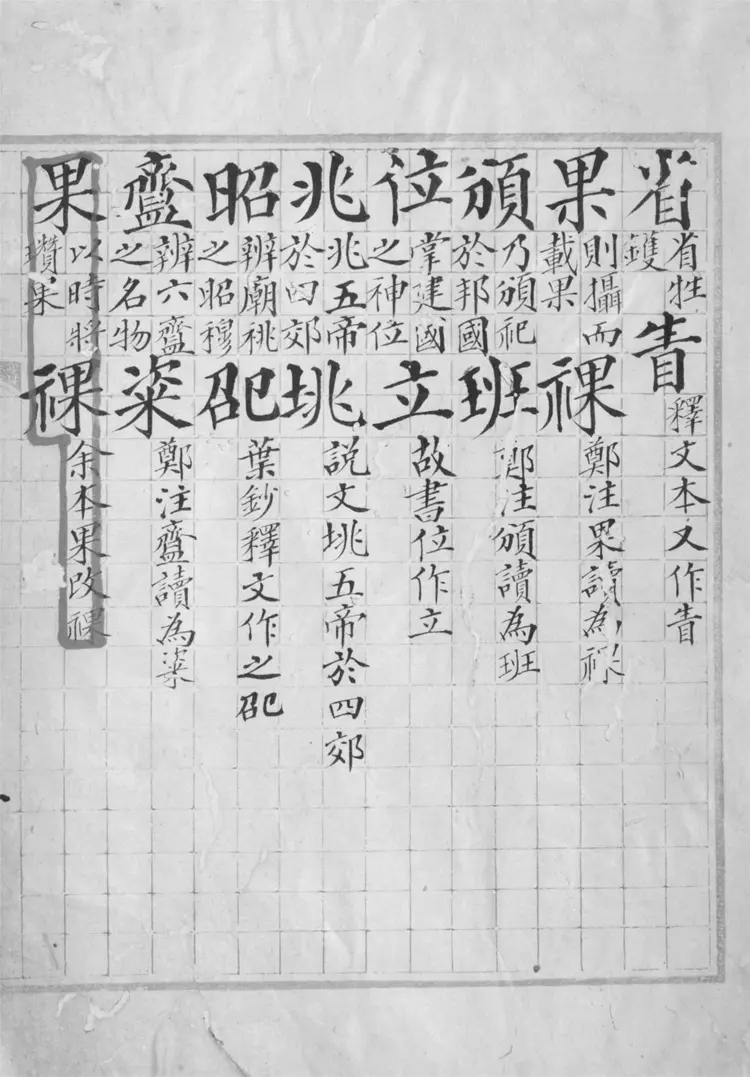 省
省牲
鑊
眚
釋文本又作眚
果
則攝而
載果
祼
鄭注果讀為祼
頒
乃頒祀
於邦國
班
鄭注頒讀為班
位
掌建國
之神位
立
故書位作立
兆
兆五帝
於四郊
垗
說文垗五帝於四郊
昭
辨廟祧
之昭穆
葉鈔釋文作之
齍
辨六齍
之名物
粢
鄭注齍讀為粢
果
以時將
瓚果
祼
余本果改祼